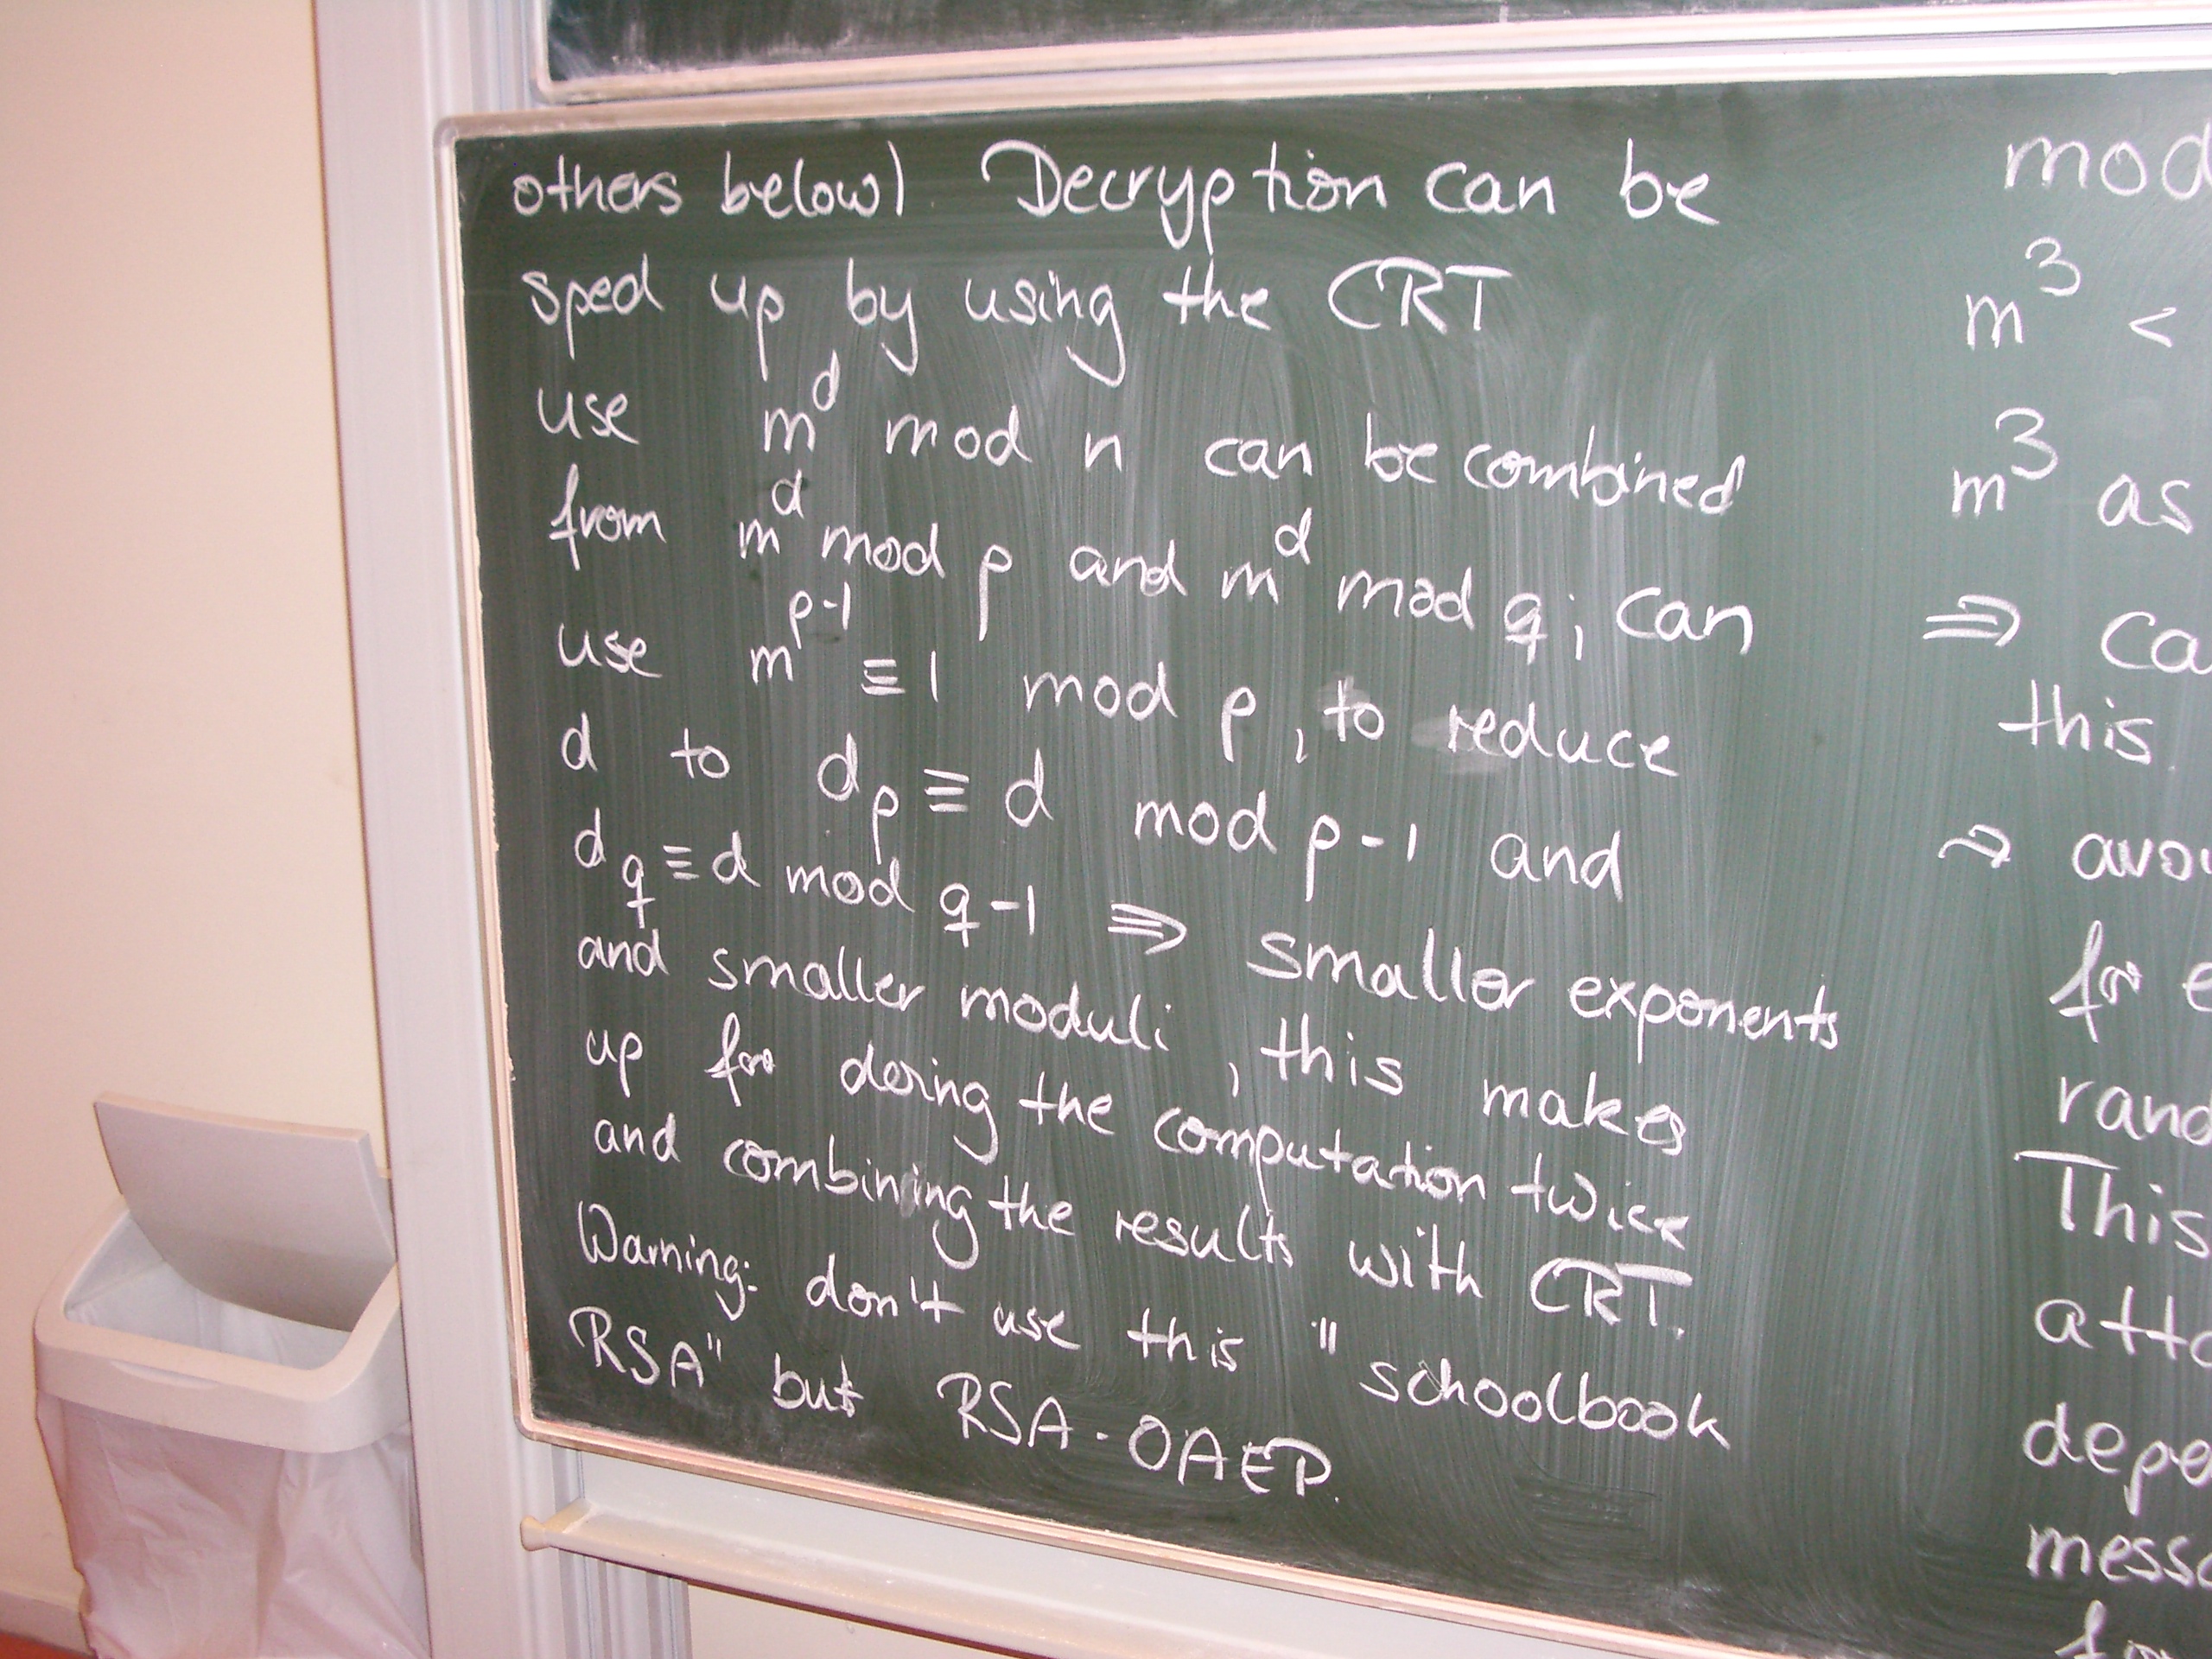 others below) Decryption can be
sped up by using the CRT
use m^d mod n can be combined
from m^d mod p and m^d mod q; can
use m^{p-1} ≡ 1 mod p, to reduce
d to d_p ≡ d mod p-1 and
d_q ≡ d mod q-1 ⇒ smaller exponents
and smaller moduli, this makes
up for doing the computation twice
and combining the results with CRT.
Warning: don't use this "schoolbook
RSA" but RSA-OAEP.
mod
m^3 <
m^3 as
⇒ ca
this
⇒ avoi
for e
rand
This
atta
depe
messa
for